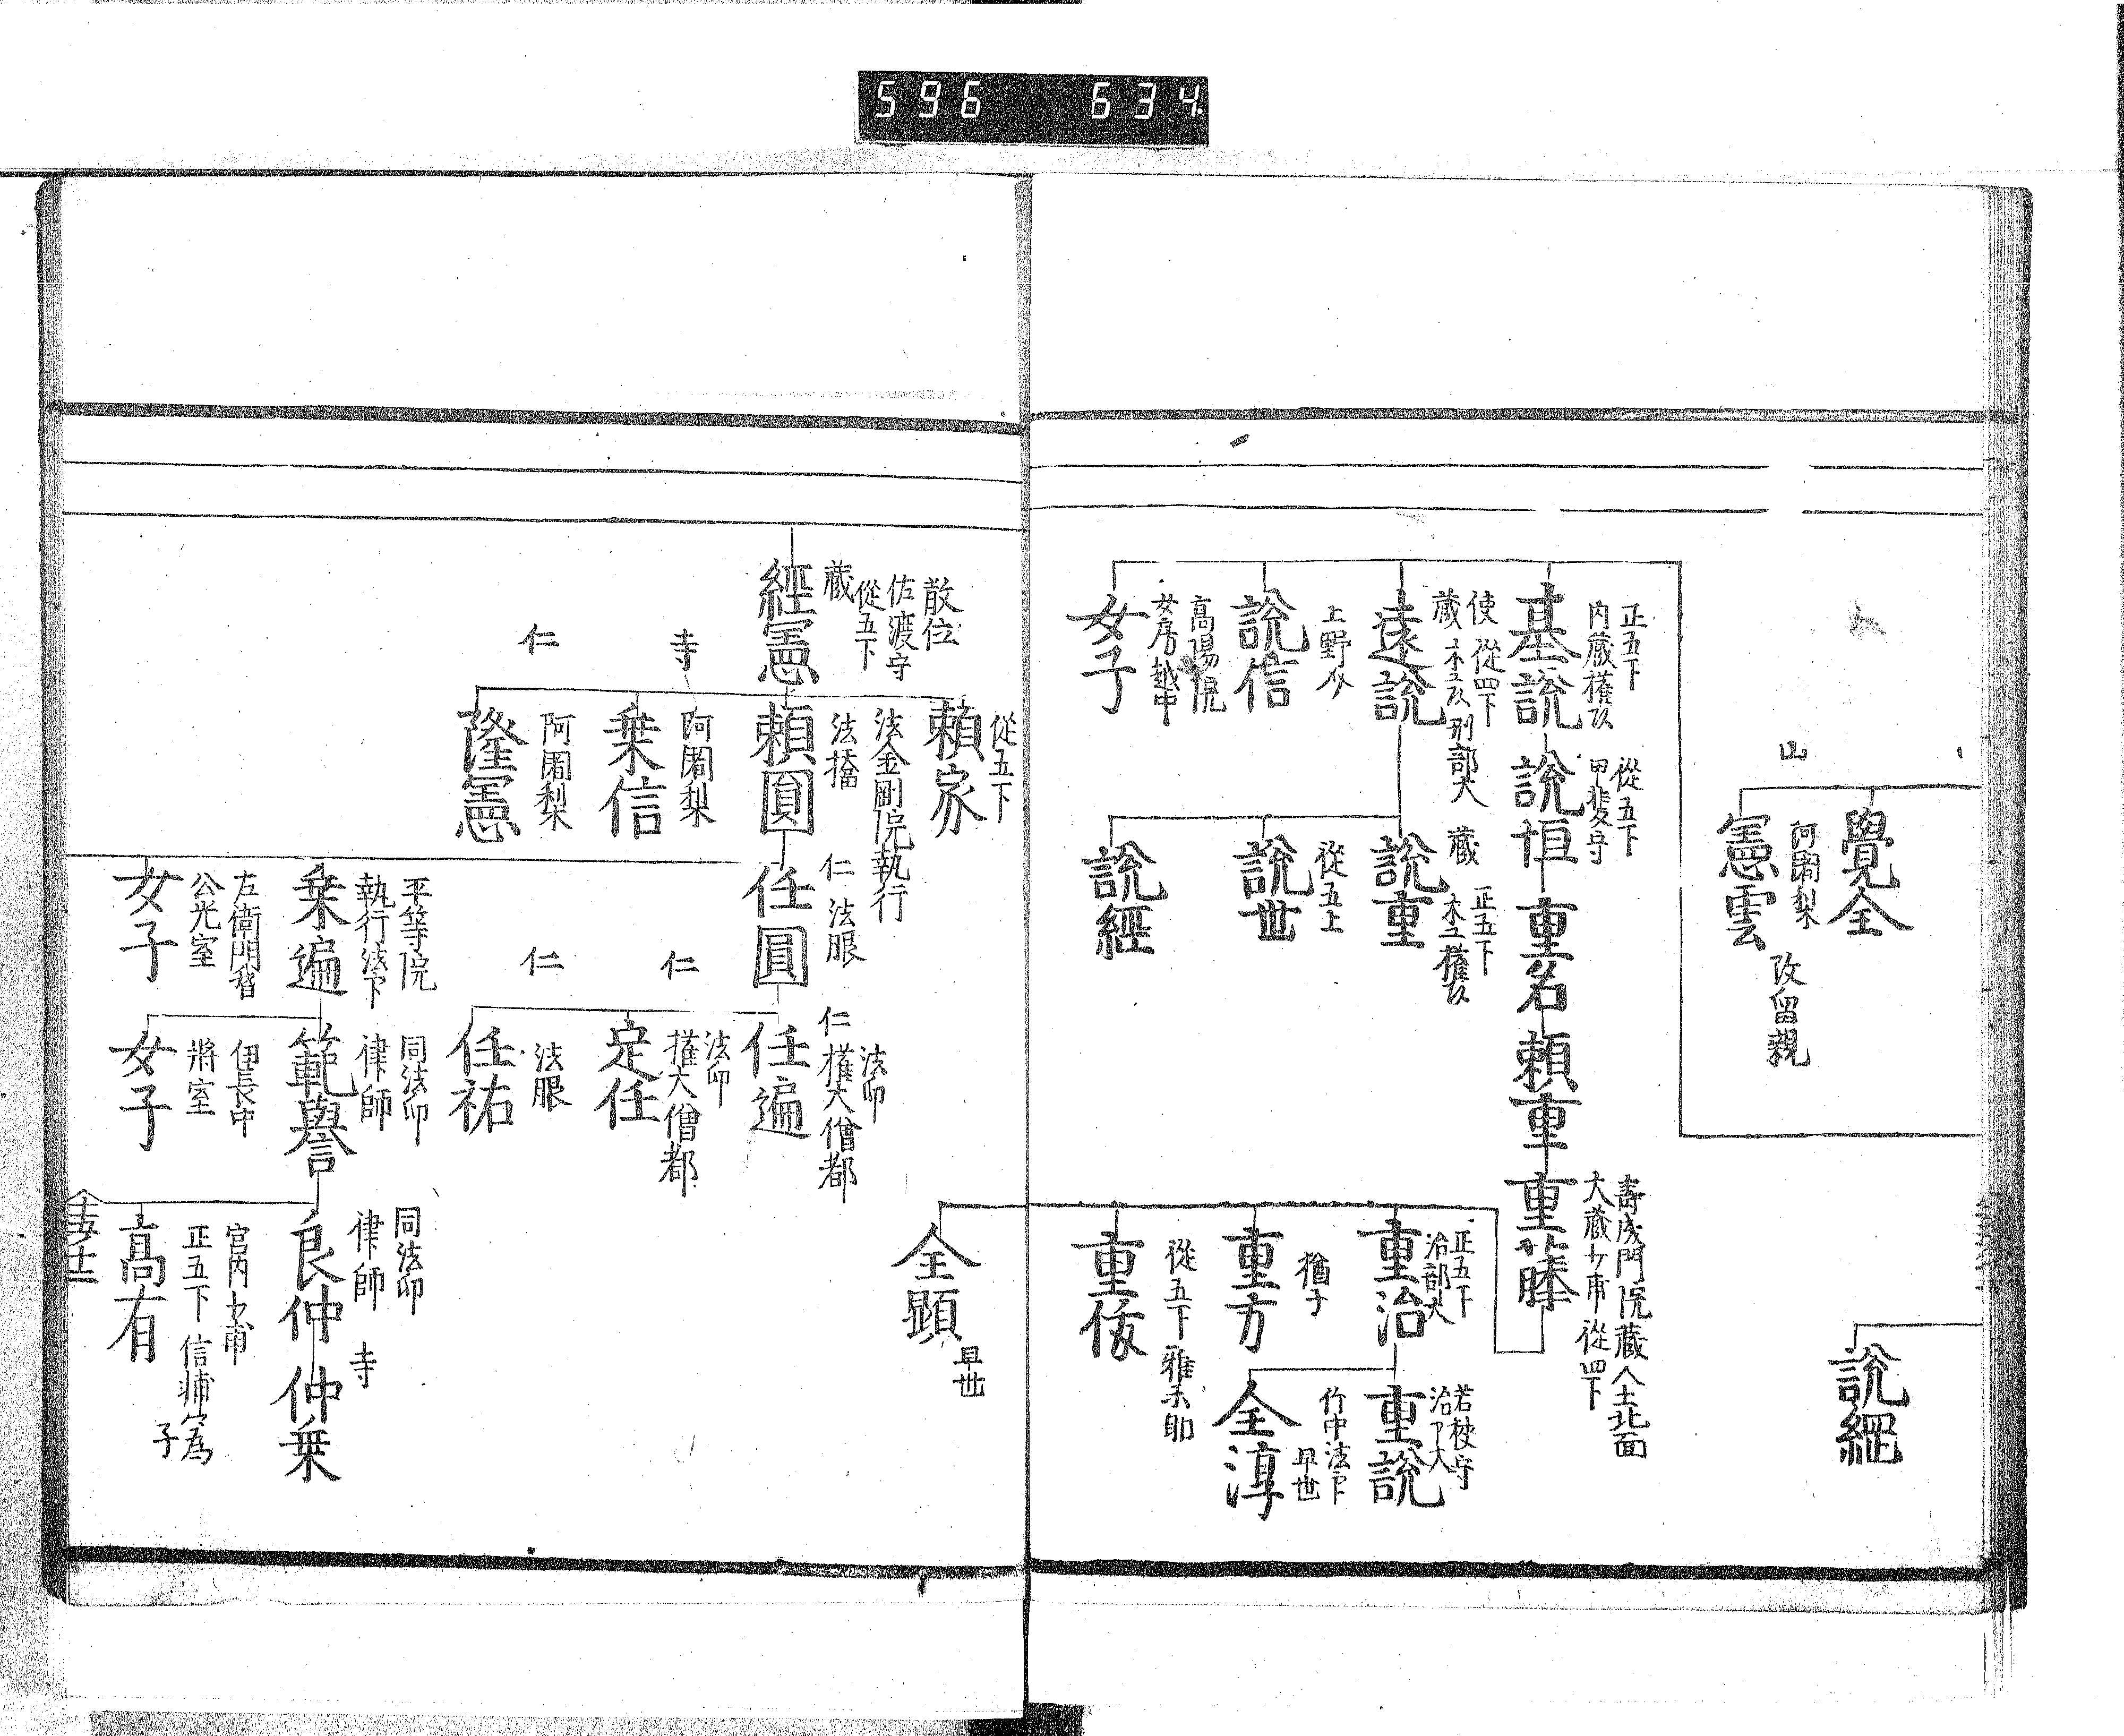 596 634
覺全
山
阿闍梨
憲雲
改留親
說經
正五下
内藏權
基說
從五下
甲斐守
說恒
重名
賴重
壽成門院藏人土北面
大藏少甫從四下
重藤
使 從四下
藏
刑部大
遠說
藏
正五下
木工權
說重
從五上
說世
說經
上野
說信
高陽院
女房越中
女子
正五下
治部大
重治
若狹守
重說
竹中法印
早世
全淳
猶子
重方
從五下
重俊
全顯
早世
散位
佐渡守
從五下
藏
經憲
從五下
賴家
法金剛院執行
法橋
賴圓
寺
阿闍梨
乗信
仁
阿闍梨
隆憲
仁 法眼
任圓
法印
仁 權大僧都
任遍
仁
法印
權大僧都
定任
仁
法眼
任祐
平等院
執行法下
乗遍
左衛門督
公光室
女子
同法印
律師
範譽
伊長中
將室
女子
同法印
律師
良仲
寺
仲乗
宮内少甫
正五下
子
高有